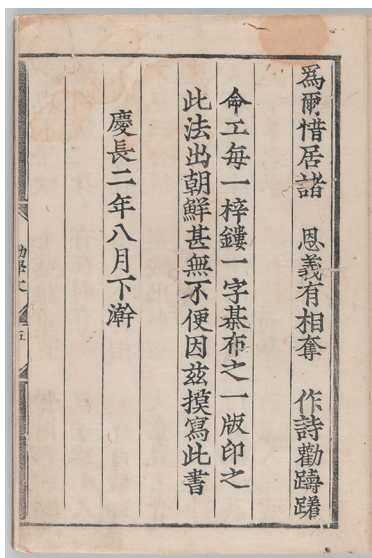 爲爾惜居諸　恩義有相奪　作詩勸躊躇
命工每一梓鏤一字棊布之一版印之
此法出朝鮮甚無不便因茲摸寫此書
慶長二年八月下澣
勸學文　五